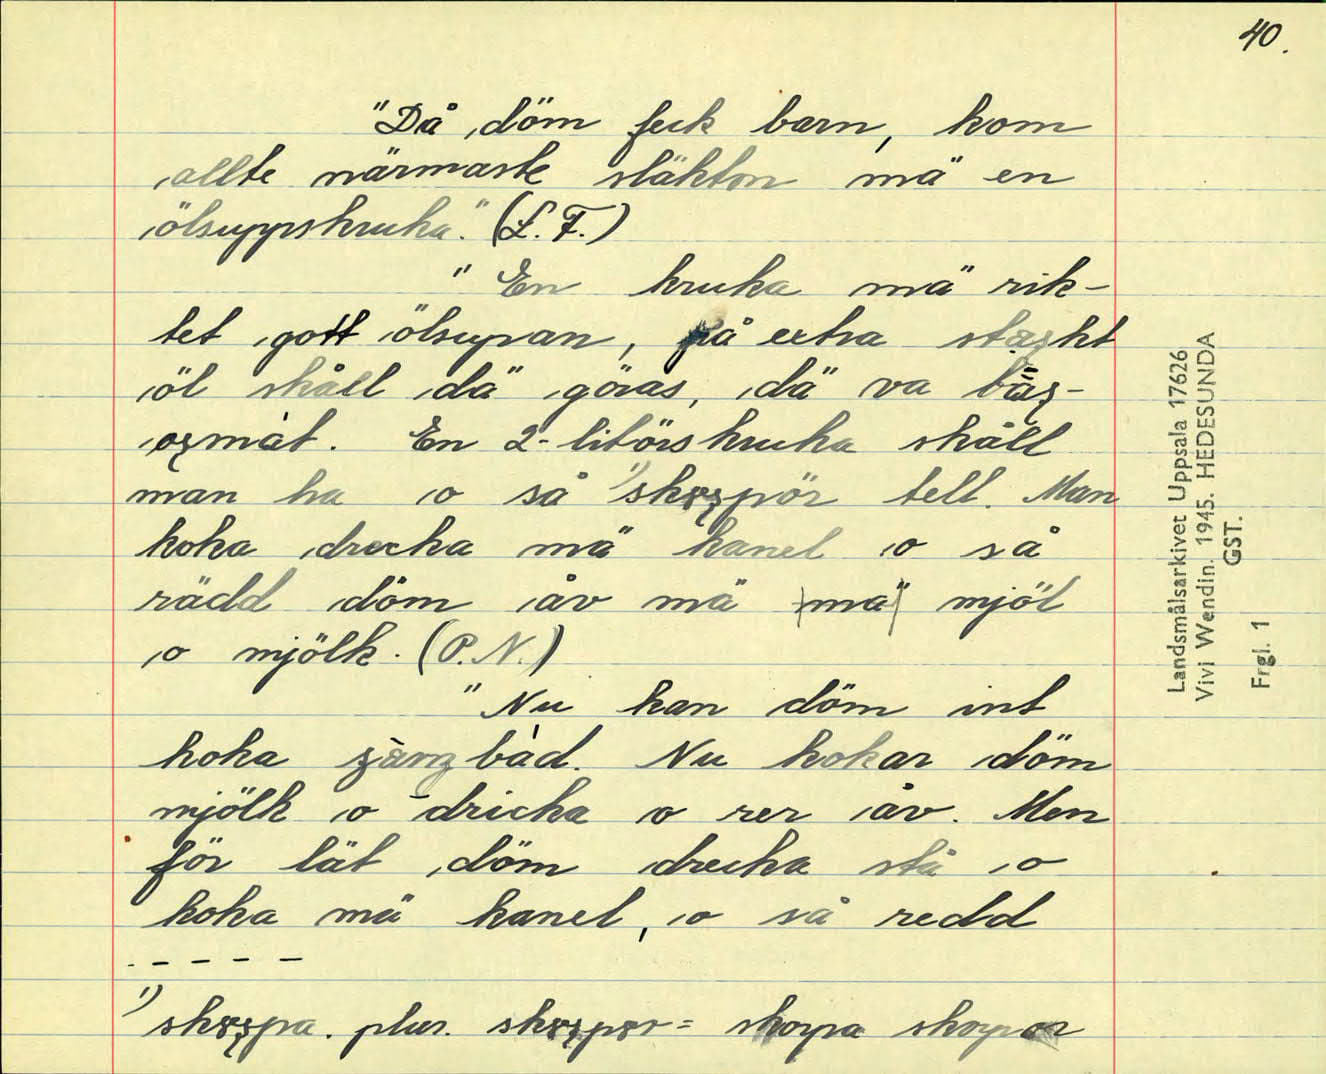 40.
"Då döm feck barn, kom
allte närmaste släkton mä en
ölsuppskruka." (L. F.)
" En kruka mä rik-
tet gott ölsupan, på extra starkt
öl skåll dä göras, dä va bäṣ-
oṣmat. En 2-litörskruka skåll
man ha o så ¹⁾skɤṣpör tell. Man
koka drecka mä kanel o så
rädd döm åv mä mä mjöl
o mjölk. (P. N.)
" Nu kan döm int
koka ʒängbåd. Nu kokar döm
mjölk o dricka o rer åv. Men
för lät döm drecka stå o
koka mä kanel, o så redd
- - - - -
¹⁾ skɤṣpa. plur. skɤṣpɤr = skorpa skorpor
Landsmålsarkivet Uppsala 17626
Vivi Wendin. 1945. HEDESUNDA
GST.
Frgl. 1